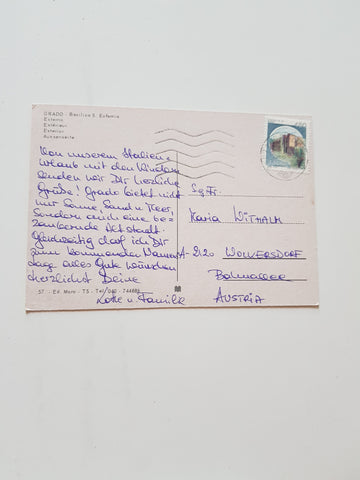 GRADO - Basilica S. Eufemia
Esterno
Extérieur
Exterior
Aussenseite
Von unserem Italien=
urlaub mit den Kindern
senden wir Dir herzliche
Grüße! Grado bietet nicht
nur Sonne Sand u. Meer,
sondern auch eine be=
zaubernde Altstadt.
Gleichzeitig darf ich Dir
zum kommenden Namens=
tage alles Gute wünschen
herzlichst Deine
Lotte u. Familie
Sg. Fr.
Maria WITHALM
A-2120 WOLKERSDORF
AUSTRIA
57 - Ed. Mare - TS - Tel. 040 -